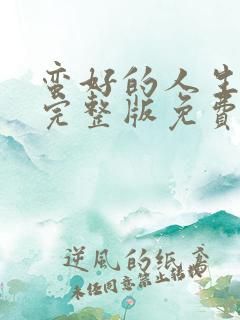 蛮好的人生
完整版免費
逆風的纸鸢
未经同意禁止转载